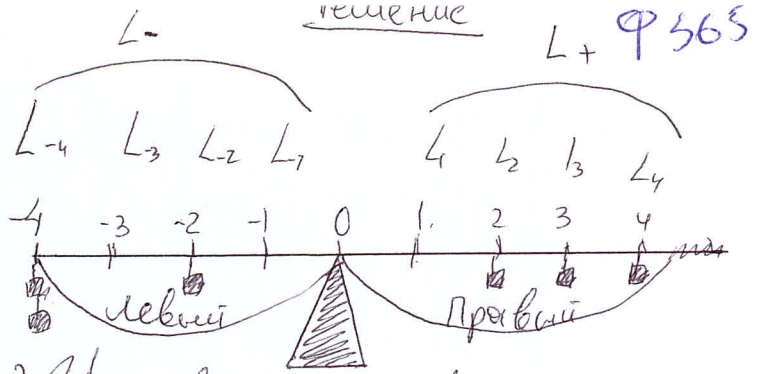 решение
L- L+ Ф565
L-4 L-3 L-2 L-1 L1 L2 L3 L4
-4 -3 -2 -1 0 1. 2 3 4
Левый Правый